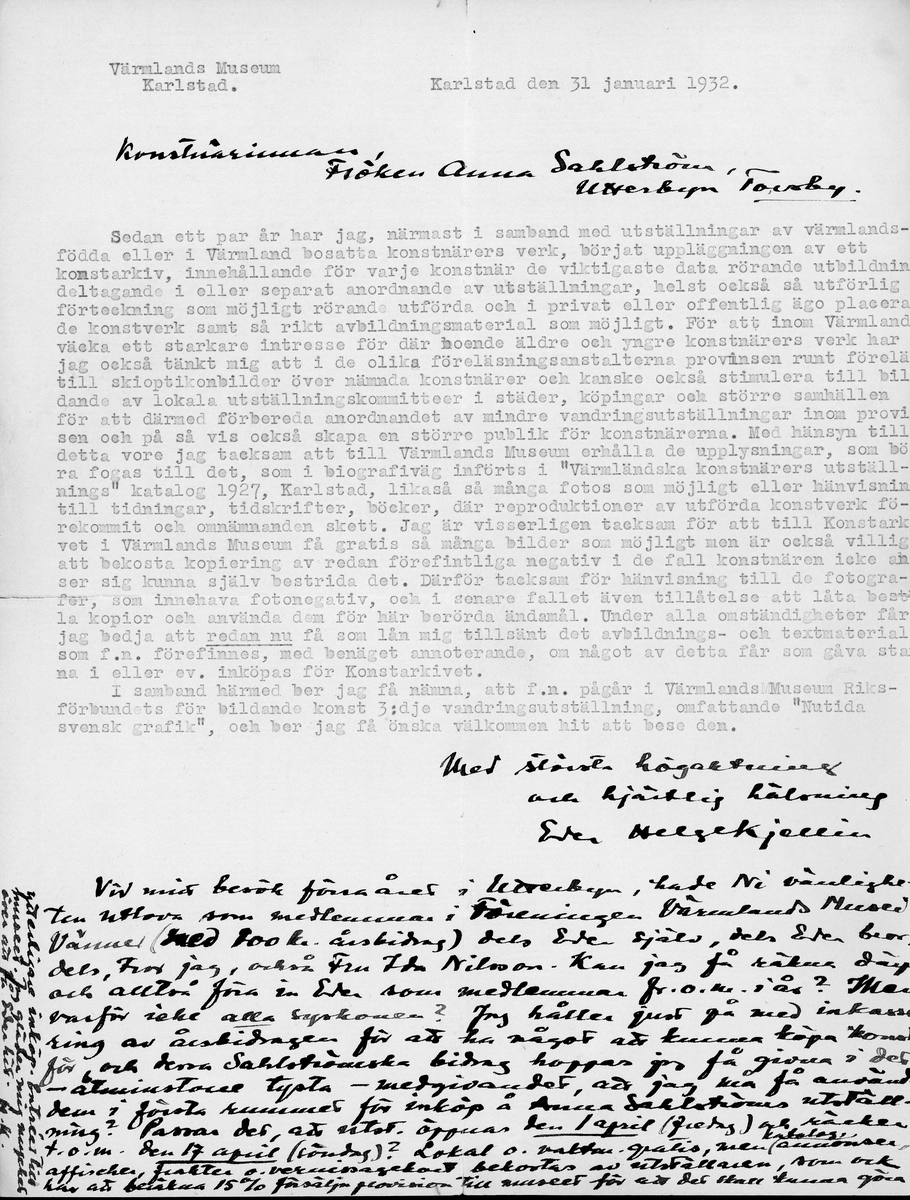 Värmlands Museum
Karlstad.
Karlstad den 31 januari 1932.
Konstnärinnan,
Fröken Anna Sahlström,
Utterbyn Torsby.
Sedan ett par år har jag, närmast i samband med utställningar av värmlands-
födda eller i Värmland bosatta konstnärers verk, börjat uppläggningen av ett
konstarkiv, innehållande för varje konstnär de viktigaste data rörande utbildnin
deltagande i eller separat anordnande av utställningar, helst också så utförlig
förteckning som möjligt rörande utförda och i privat eller offentlig ägo placera
de konstverk samt så rikt avbildningsmaterial som möjligt. För att inom Värmland
väcka ett starkare intresse för där boende äldre och yngre konstnärers verk har
jag också tänkt mig att i de olika föreläsningsanstalterna provinsen runt förelä
till skioptikonbilder över nämnda konstnärer och kanske också stimulera till bil
dande av lokala utställningskommitteer i städer, köpingar och större samhällen
för att därmed förbereda anordnandet av mindre vandringsutställningar inom provi
sen och på så vis också skapa en större publik för konstnärerna. Med hänsyn till
detta vore jag tacksam att till Värmlands Museum erhålla de upplysningar, som bö
ra fogas till det, som i biografiväg införts i "Värmländska konstnärers utställ-
nings" katalog 1927, Karlstad, likaså så många fotos som möjligt eller hänvisnin
till tidningar, tidskrifter, böcker, där reproduktioner av utförda konstverk fö-
rekommit och omnämnanden skett. Jag är visserligen tacksam för att till Konstark
vet i Värmlands Museum få gratis så många bilder som möjligt men är också villig
att bekosta kopiering av redan förefintliga negativ i de fall konstnären icke an
ser sig kunna själv bestrida det. Därför tacksam för hänvisning till de fotogra-
fer, som innehava fotonegativ, och i senare fallet även tillåtelse att låta best
la kopior och använda dem för här berörda ändamål. Under alla omständigheter får
jag bedja att redan nu få som lån mig tillsänt det avbildnings- och textmaterial
som f.n. förefinnes, med benäget annoterande, om något av detta får som gåva sta
na i eller ev. inköpas för Konstarkivet.
I samband härmed ber jag få nämna, att f.n. pågår i Värmlands Museum Riks-
förbundets för bildande konst 3:dje vandringsutställning, omfattande "Nutida
svensk grafik", och ber jag få önska välkommen hit att bese den.
Med största högaktning
och hjärtlig hälsning
Eder Helge Kjellin
Vid mitt besök förra året i Utterbyn, hade Ni vänlighe-
ten utlova som medlemmar i Föreningen Värmlands Musei
Vänner (med 100 kr. årsbidrag) dels Eder själv, dels Eder bror,
dels, tror jag, också Fru Ida Nilsson. Kan jag få räkna därp
och alltså föra in Eder som medlemmar fr.o.m. i år? Men
varför icke alla syskonen? Jag håller just på med inkasse
ring av årsbidragen för att ha något att kunna köpa konst
för, och dessa Sahlströmska bidrag hoppas jag få givna i det
– åtminstone tysta – medgivandet, att jag må få använd
dem i första rummet för inköp å Anna Sahlströms utställ-
ning? Passar det, att utst. öppnas den 1 april (fredag) och räcker
t.o.m. den 17 april (söndag)? Lokal o. vaktm. gratis, men katalog, annonser,
affischer, frakter o. vernissagekort bekostas av utställaren, som ock
har att beräkna 15% försäljn.provision till museet för att det skall kunna göra
ytterligare inköp
museet. Jag gläder mig mycket